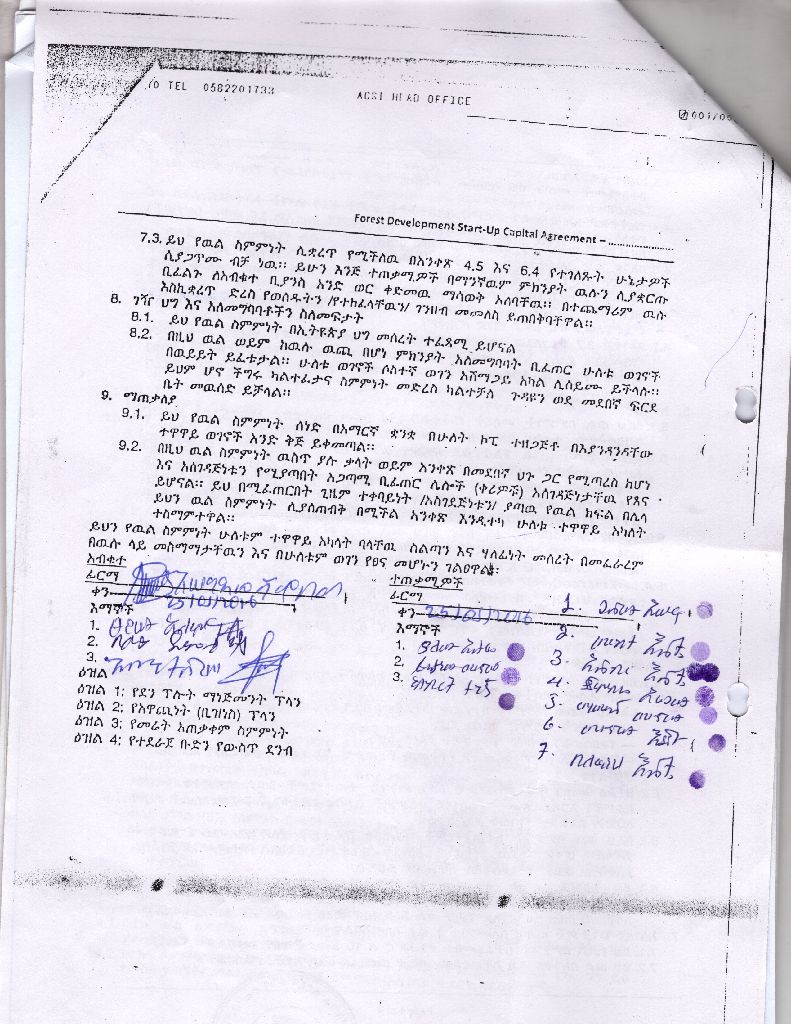 /O TEL 0582201733 ACSI HEAD OFFICE 001/00
Forest Development Start-Up Capital Agreement – .....................
7.3. ይህ የዉል ስምምነት ሊቋረጥ የሚችለዉ በአንቀጽ 4.5 እና 6.4 የተገለጹት ሁኔታዎች
ሲያጋጥሙ ብቻ ነዉ። ይሁን እንጅ ተጠቃሚዎች በማንኛዉም ምክንያት ዉሉን ሊያቋርጡ
ቢፈልጉ ለአብቁተ ቢያንስ አንድ ወር ቀድመዉ ማሳወቅ አለባቸዉ። በተጨማሪም ዉሉ
እስኪቋረጥ ድረስ የወሰዱትን /የተከፈላቸዉን/ ገንዘብ መመለስ ይጠበቅባቸዋል።
8. ገዥ ህግ እና አለመግባባቶችን ስለመፍታት
8.1. ይህ የዉል ስምምነት በኢትዩጵያ ህግ መሰረት ተፈጻሚ ይሆናል
8.2. በዚህ ዉል ወይም ከዉሉ ዉጪ በሆነ ምክንያት አለመግባባት ቢፈጠር ሁለቱ ወገኖች
በዉይይት ይፈቱታል። ሁለቱ ወገኖች ሶስተኛ ወገን አሸማጋይ አካል ሊሰይሙ ይችላሉ።
ይህም ሆኖ ችግሩ ካልተፈታና ስምምነት መድረስ ካልተቻለ ጉዳዩን ወደ መደበኛ ፍርድ
ቤት መዉሰድ ይቻላል።
9. ማጠቃለያ
9.1. ይህ የዉል ስምምነት ሰነድ በአማርኛ ቋንቋ በሁለት ኮፒ ተዘጋጅቶ በእያንዳንዳቸው
ተዋዋይ ወገኖች አንድ ቅጅ ይቀመጣል።
9.2. በዚህ ዉል ስምምነት ዉስጥ ያሉ ቃላት ወይም አንቀጽ በመደበኛ ህጉ ጋር የሚጣረስ ከሆነ
እና አስገዳጅነቱን የሚያጣበት አጋጣሚ ቢፈጠር ሌሎች (ቀሪዎቹ) አስገዳጅነታቸዉ የጸና
ይሆናል። ይህ በሚፈጠርበት ጊዜም ተቀባይነት /አስገደጅነቱን/ ያጣዉ የዉል ክፍል በሌላ
ይህን ዉል ስምምነት ሊያስጠብቅ በሚችል አንቀጽ እንዲተካ ሁለቱ ተዋዋይ አካላት
ተስማምተዋል።
ይህን የዉል ስምምነት ሁለቱም ተዋዋይ አካላት ባላቸዉ ስልጣን እና ሃላፊነት መሰረት በመፈራረም
በዉሉ ላይ መስማማታቸዉን እና በሁለቱም ወገን የፀና መሆኑን ገልፀዋል፡
አብቁተ
ፊርማ
ቀን 25/01/2016
እማኞች
1.
2.
3.
ተጠቃሚዎች
ፊርማ
ቀን 25/01/2016
እማኞች
1.
2.
3.
1.
2.
3.
4.
5.
6.
7.
ዕዝል
ዕዝል 1፡ የደን ፕሎት ማነጅመንት ፕላን
ዕዝል 2፡ የአዋጪነት (ቢዝነስ) ፕላን
ዕዝል 3፡ የመሬት አጠቃቀም ስምምነት
ዕዝል 4፡ የተደራጀ ቡድን የውስጥ ደንብ